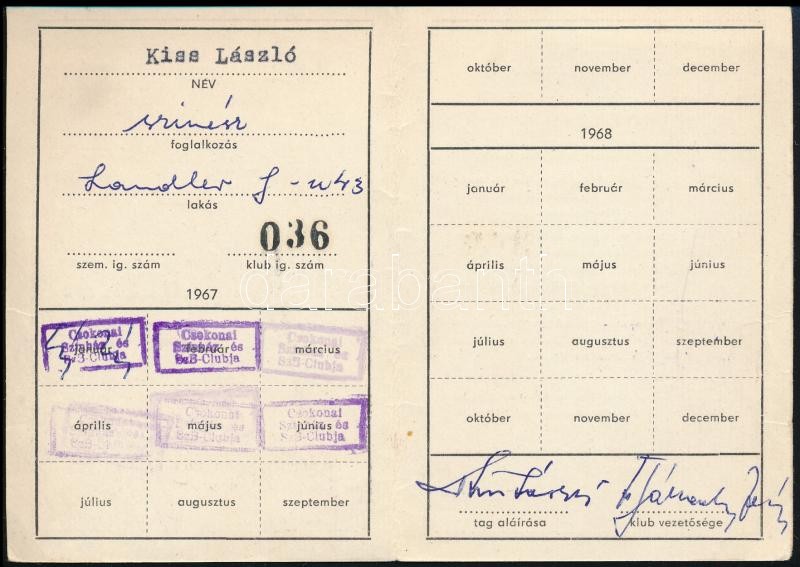 Kiss László
NÉV
szinész
foglalkozás
Landler J - u 43
lakás
036
szem. ig. szám klub ig. szám
1967
Csokonai Csokonai Csokonai
Színház és Színház és Színház és
SzB-Clubja SzB-Clubja SzB-Clubja
január február március
Csokonai Csokonai
Színház és Színház és
SzB-Clubja SzB-Clubja SzB-Clubja
április május június
július augusztus szeptember
október november december
1968
január február március
április május június
július augusztus szeptember
október november december
tag aláírása klub vezetősége
darabanth